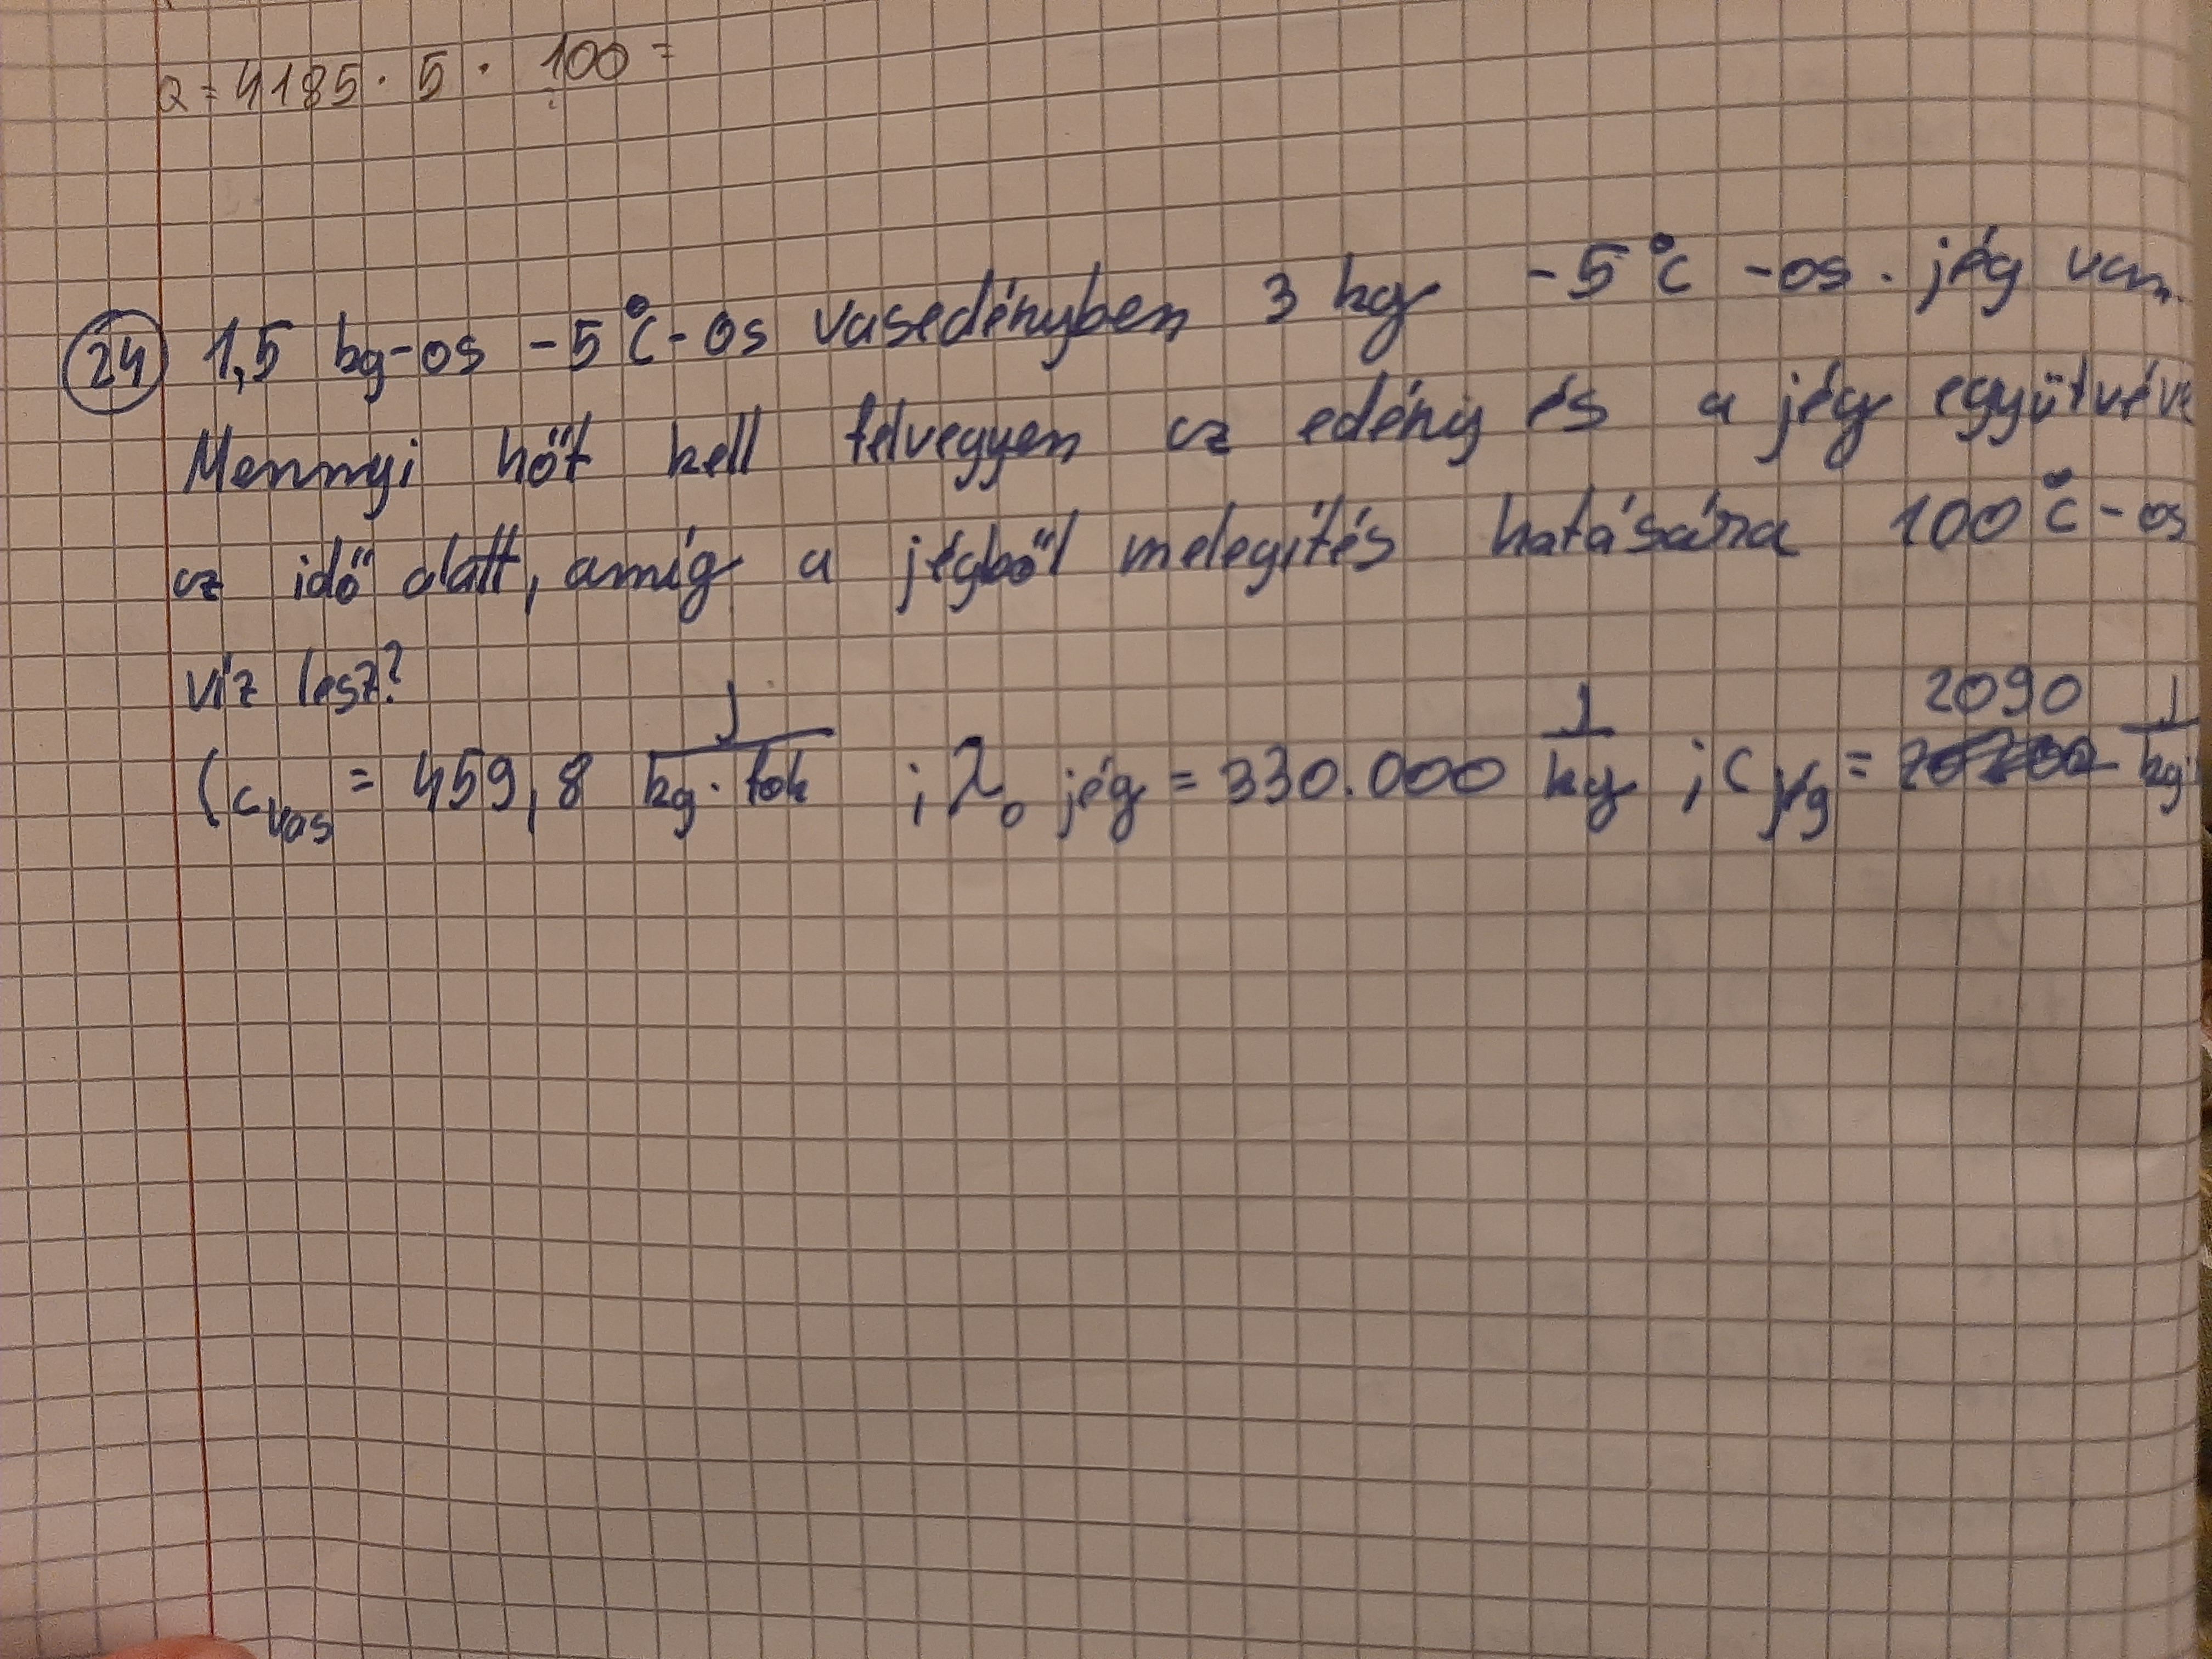 Q = 4185 · 5 · 100 =
24 1,5 kg-os -5°C-os vasedényben 3 kg -5°C -os. jég van.
Mennyi hőt kell felvegyen az edény és a jég együtvéve
az idő alatt, amíg a jégből melegítés hatására 100°C-os
víz lesz?
(c vas = 459,8 J/kg·fok ; λ₀ jég = 330.000 J/kg ; c jég = 2090 J/kg·